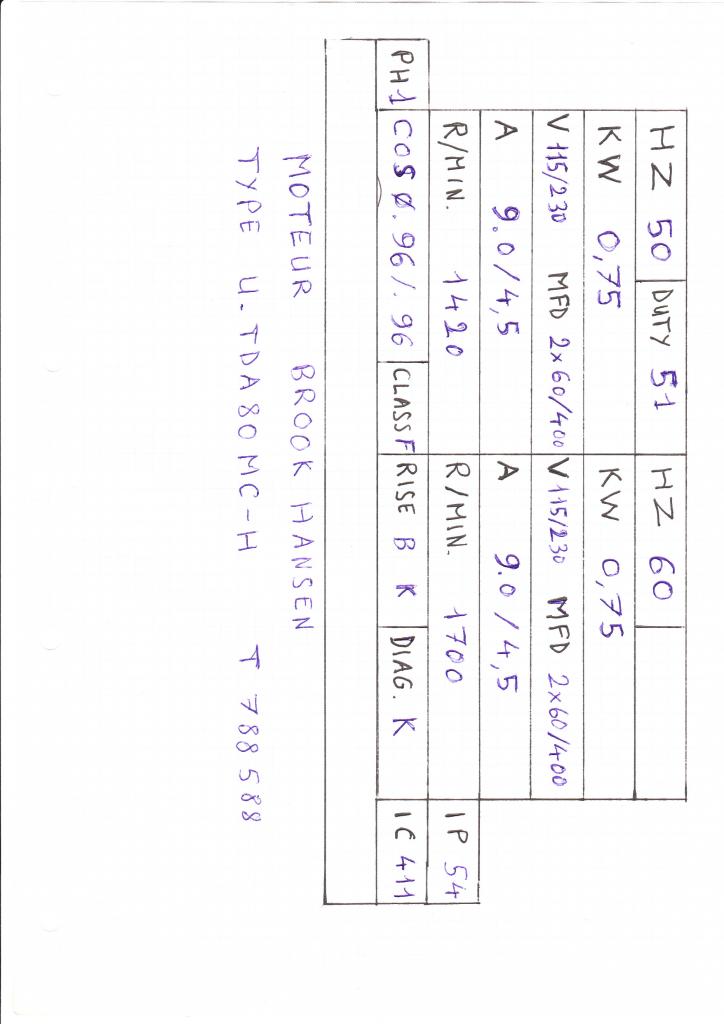 HZ 50 DUTY S1 HZ 60
KW 0,75 KW 0,75
V 115/230 MFD 2x60/400 V 115/230 MFD 2x60/400
A 9.0/4,5 A 9.0/4,5
R/MIN. 1420 R/MIN. 1700 IP 54
PH 1 COS Ø.96/.96 CLASS F RISE B K DIAG. K IC 411
MOTEUR BROOK HANSEN
TYPE U.TDA80MC-H T 788588